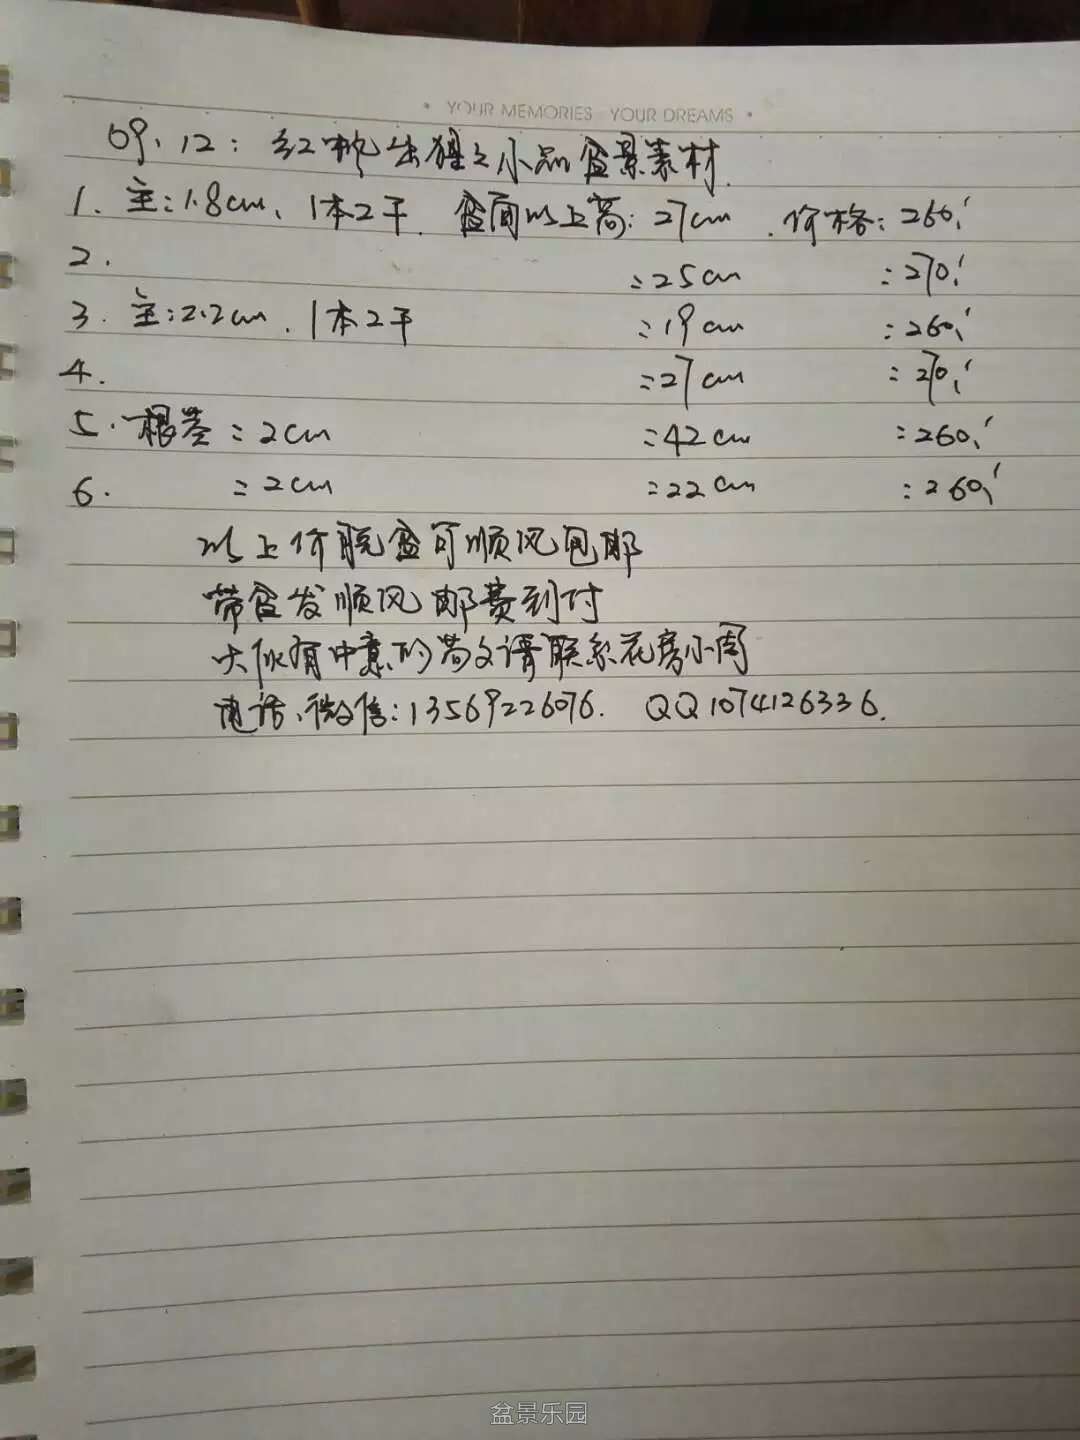 • YOUR MEMORIES YOUR DREAMS •
09.12: 红枫出猩之小品盆景素材.
1. 主:1.8cm、1本2干. 盆面以上高: 27cm. 价格: 260.
2. :25cm :270.
3. 主:2.2cm. 1本2干 :19cm :260.
4. :27cm :270.
5. 根茎:2cm :42cm :260.
6. :2cm :22cm :260.
以上价脱盆可顺风包邮
带盆发顺风邮费到付
大伙有中意的苗文请联系花房小周
电话、微信:13569226076. QQ1074126336.
盆景乐园